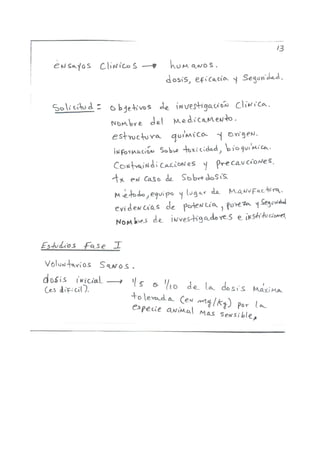 13
ENSAYOS CLINICOS → HUMANOS.
dosis, eficacia y Seguridad.
Solicitud = objetivos de investigación Clínica.
Nombre del Medicamento.
estructura química y origen.
Información Sobre toxicidad, bioquímica.
Contraindicaciones y Precauciones.
tx en caso de Sobredosis.
Método, equipo y lugar de Manufactura.
evidencias de potencia, pureza y Seguridad
Nombres de investigadores e instituciones
Estudios Fase I
Voluntarios Sanos.
dosis inicial → 1/5 o 1/10 de la dosis Máxima
(es difícil). tolerada (en mg/kg) por la
especie animal Mas sensible,